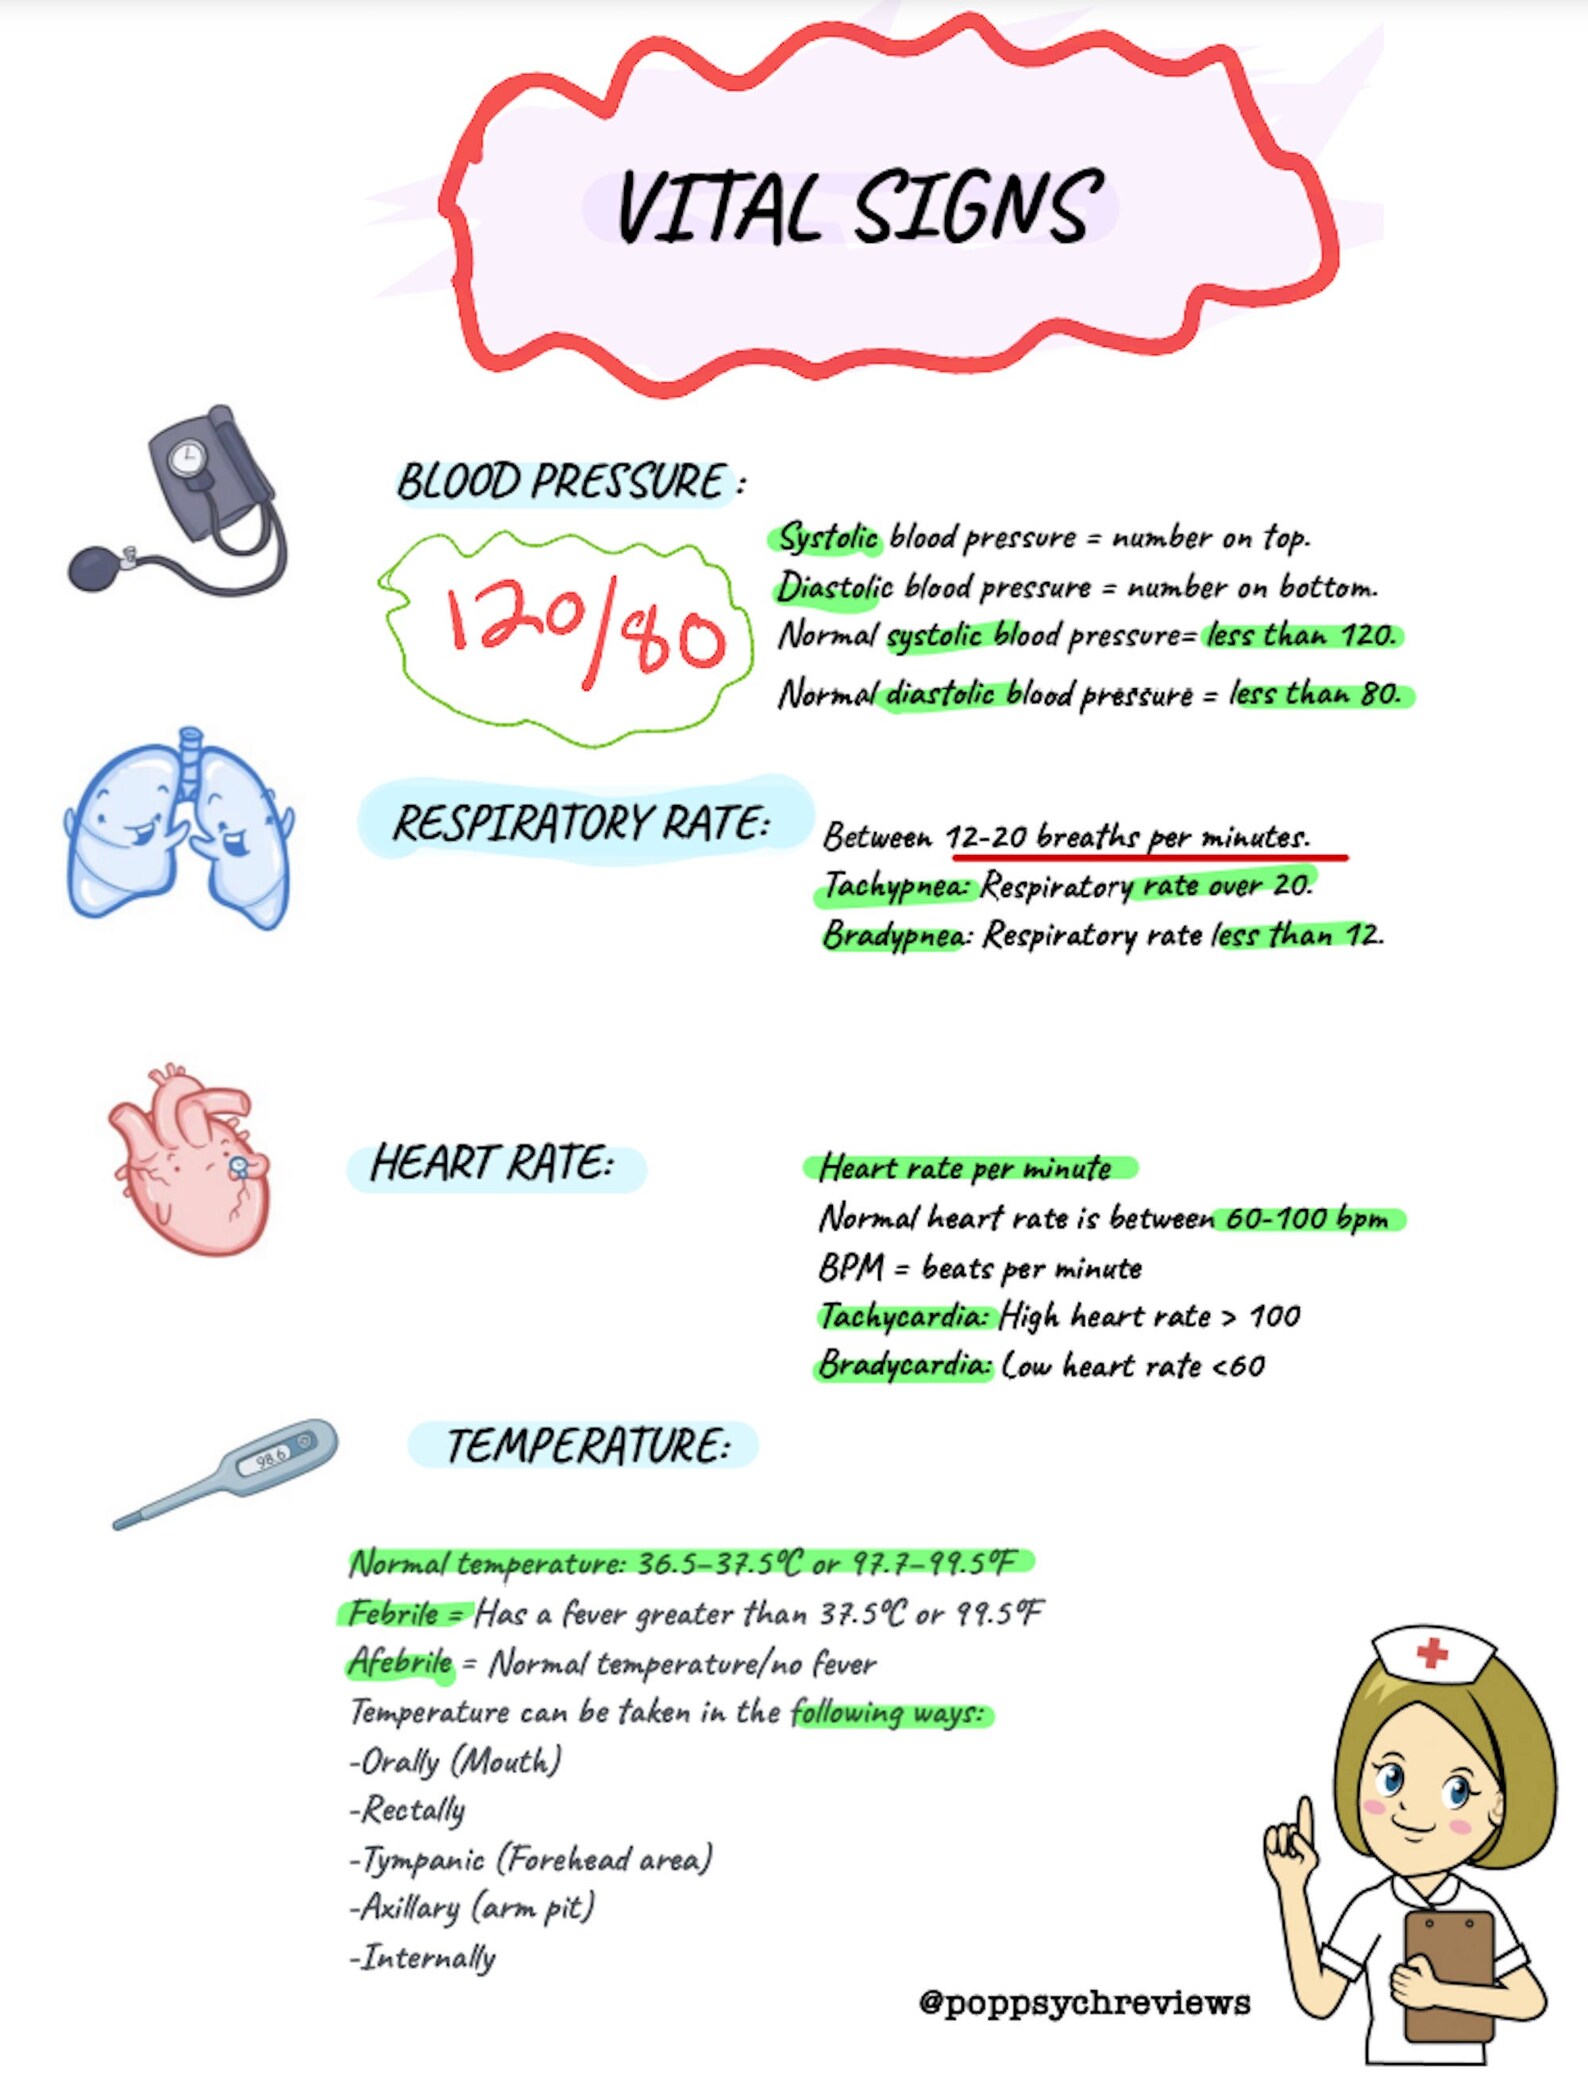 VITAL SIGNS
BLOOD PRESSURE :
120/80
Systolic blood pressure = number on top.
Diastolic blood pressure = number on bottom.
Normal systolic blood pressure= less than 120.
Normal diastolic blood pressure = less than 80.
RESPIRATORY RATE:
Between 12-20 breaths per minutes.
Tachypnea: Respiratory rate over 20.
Bradypnea: Respiratory rate less than 12.
HEART RATE:
Heart rate per minute
Normal heart rate is between 60-100 bpm
BPM = beats per minute
Tachycardia: High heart rate > 100
Bradycardia: Low heart rate <60
98.6
TEMPERATURE:
Normal temperature: 36.5–37.5ºC or 97.7–99.5ºF
Febrile = Has a fever greater than 37.5ºC or 99.5ºF
Afebrile = Normal temperature/no fever
Temperature can be taken in the following ways:
-Orally (Mouth)
-Rectally
-Tympanic (Forehead area)
-Axillary (arm pit)
-Internally
@poppsychreviews